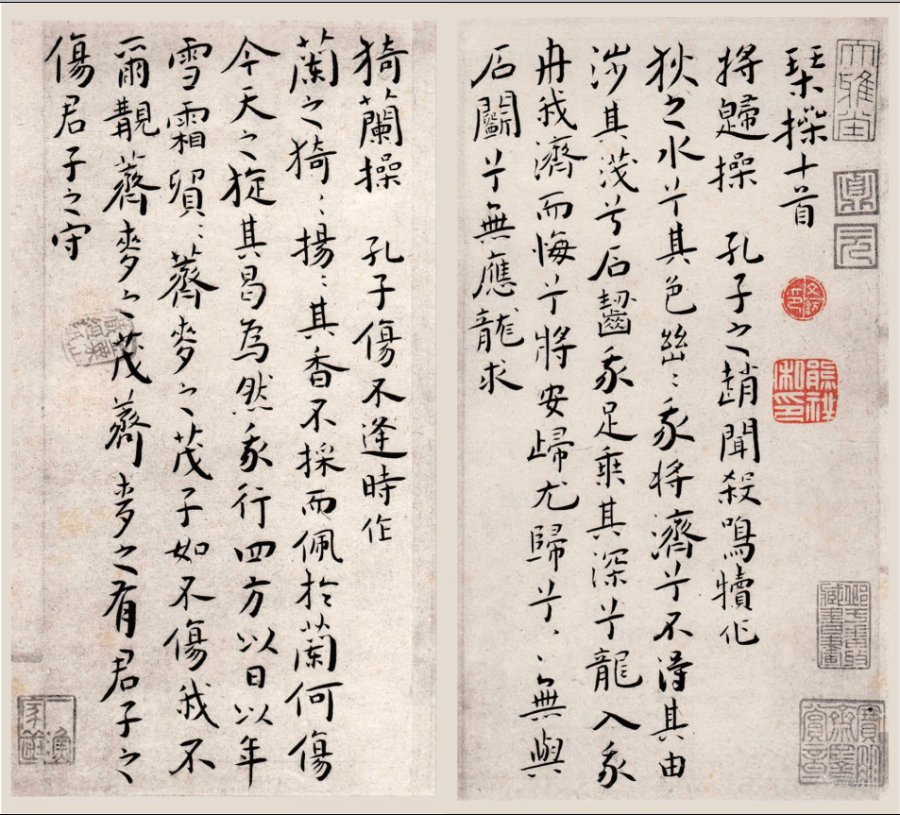 琹操十首
將歸操 孔子之趙聞殺鳴犢作
狄之水兮其色幽〻我將濟兮不得其由
涉其淺兮石齧我足乘其深兮龍入我
舟我濟而悔兮將安歸尤歸兮〻〻無與
石鬭兮無應龍求
猗蘭操 孔子傷不逢時作
蘭之猗〻揚〻其香不採而佩於蘭何傷
今天之旋其曷為然我行四方以日以年
雪霜貿〻薺麥之茂子如不傷我不
爾覯薺麥之茂薺麥之有君子之
傷君子之守